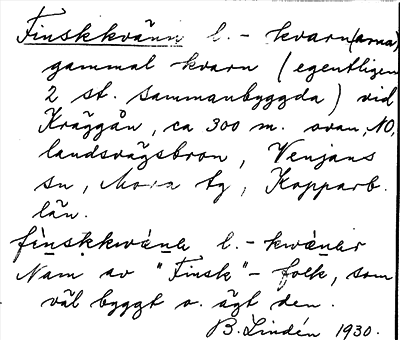 Finskkvänn l. - kvarn(arna),
gammal kvarn (egentligen
2 st. sammanbyggda) vid
Kräggån, ca 300 m. ovan, NO,
landsvägsbron, Venjans
sn, Mora tg, Kopparb.
län.
fìnskkwä̀nɐ l. - kwä̀nɐr
Namn av "Finsk" - folk, som
väl byggt o. ägt den.
B. Lindén 1930.